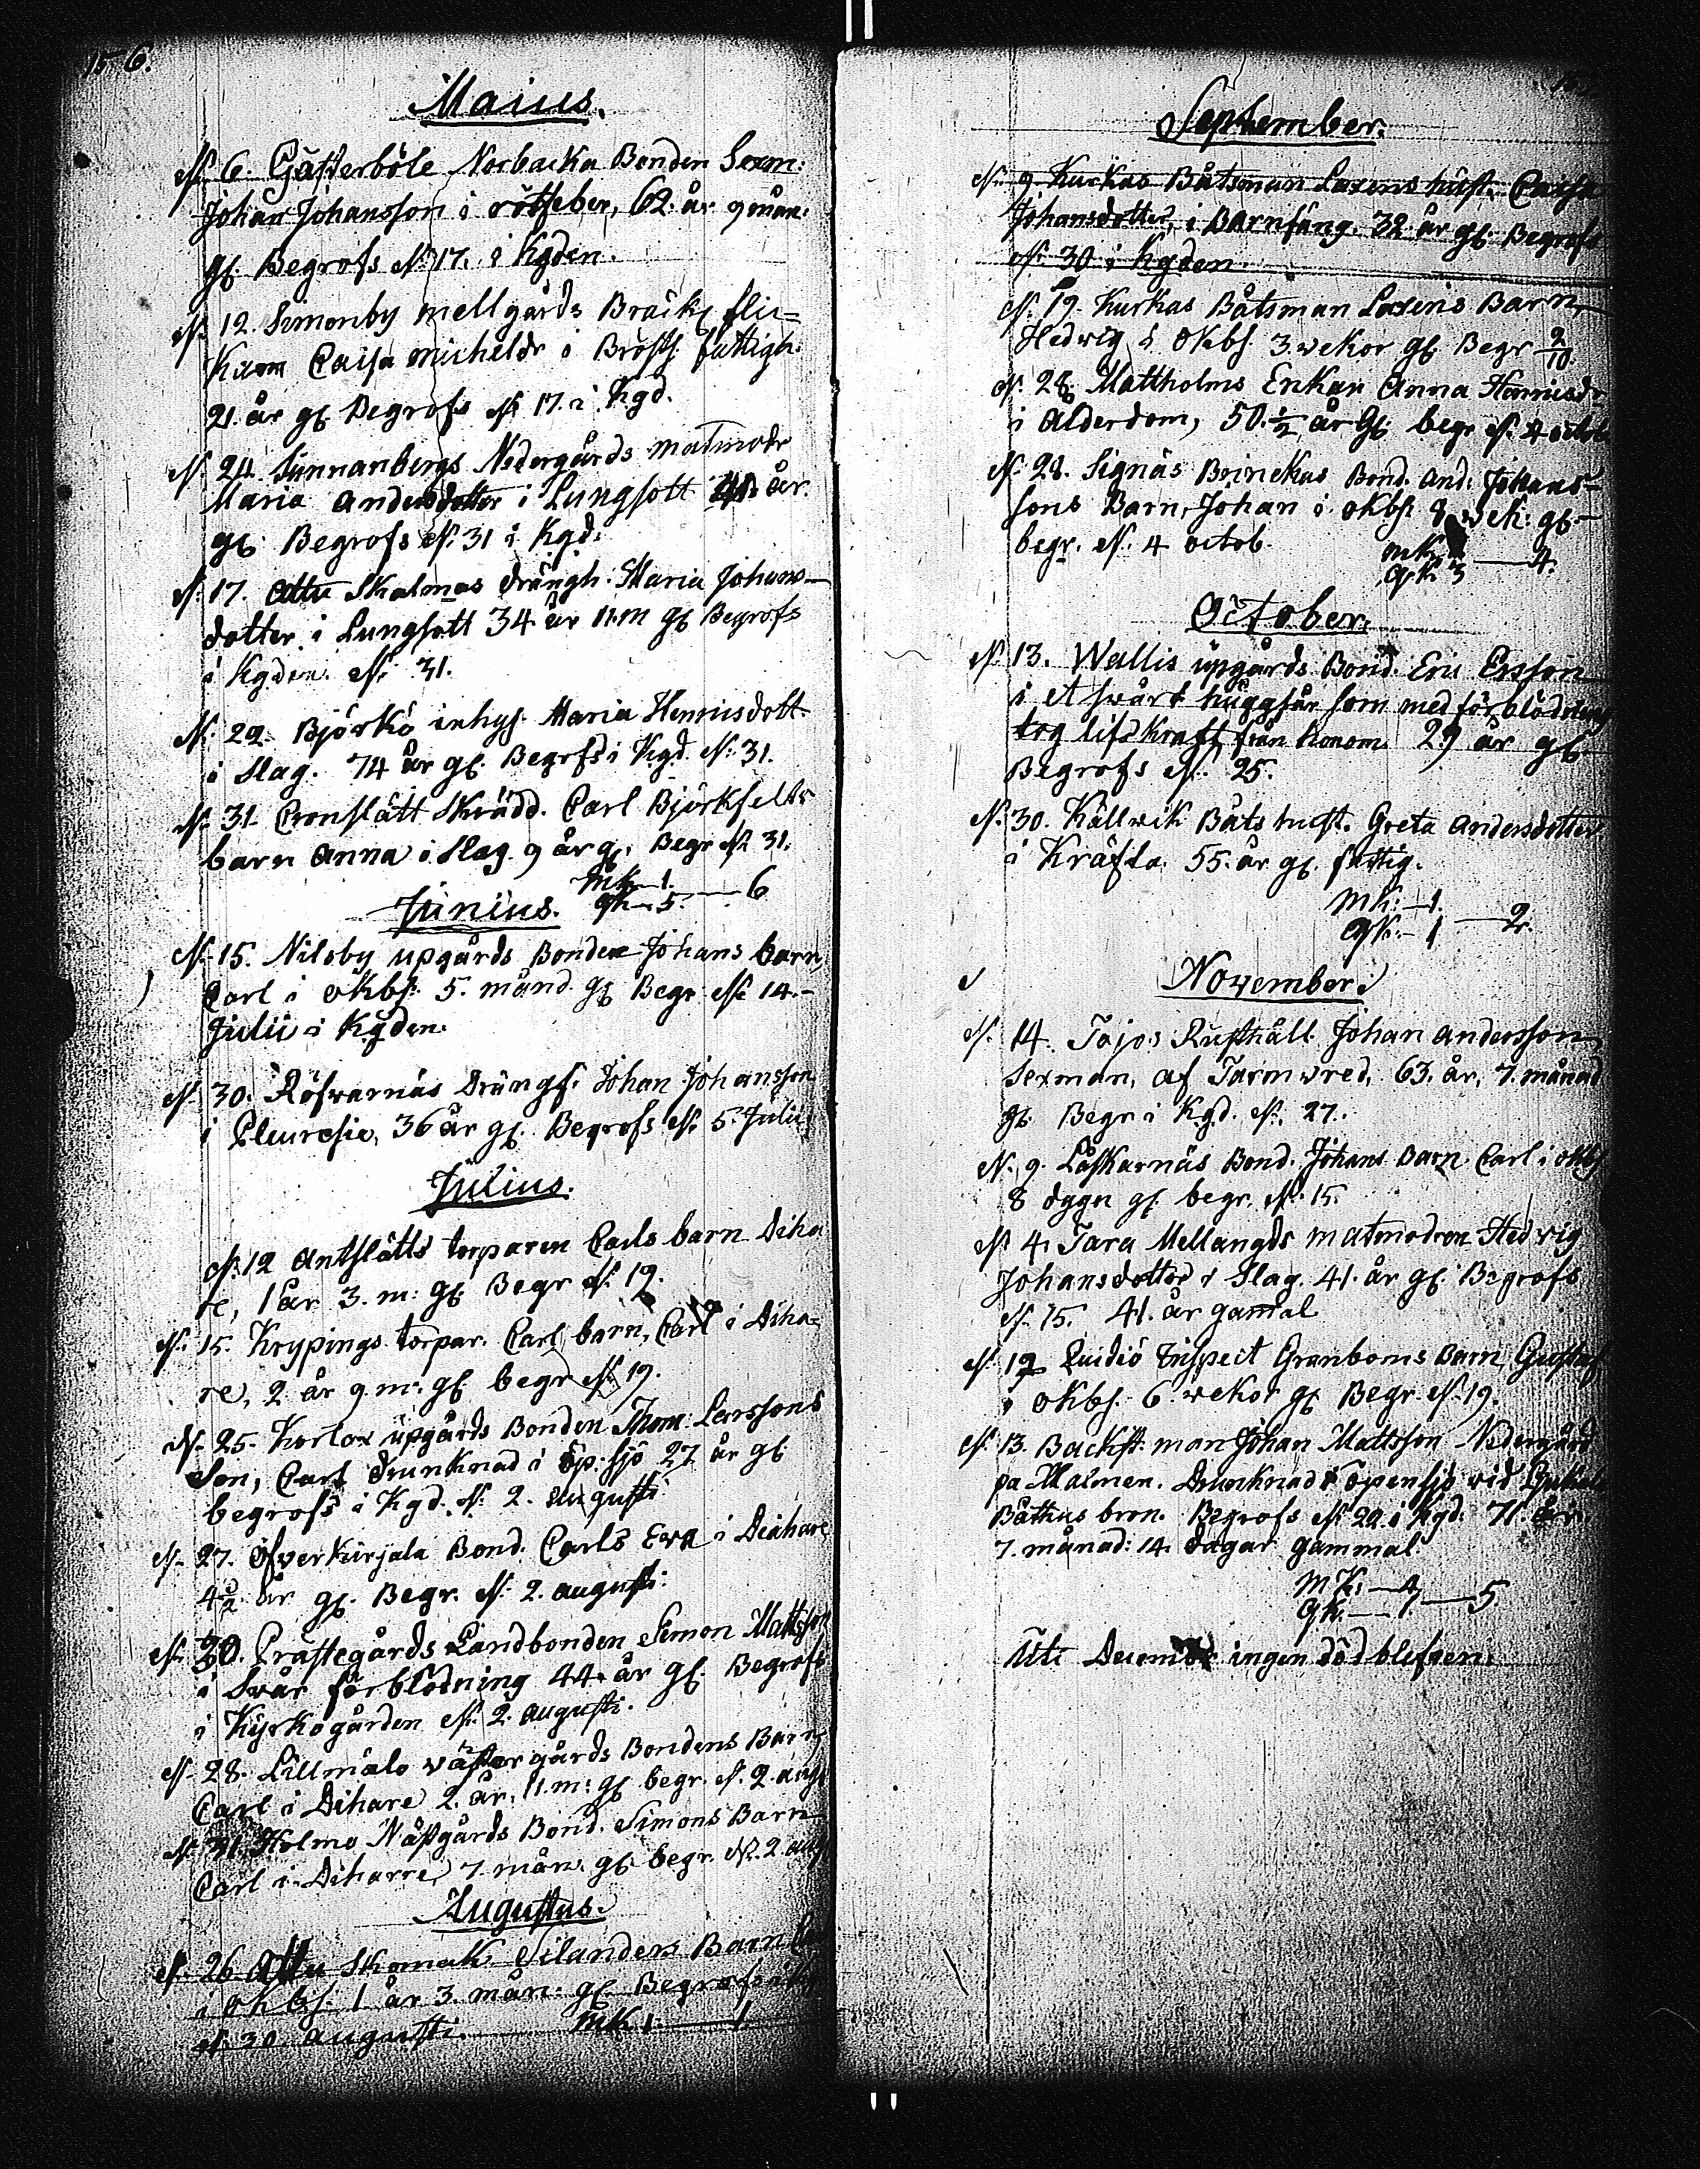 156.
Maius.
N. 6. Gästerböle Norbacka Bonden Sexm:
Johan Johansson i rötfeber, 62. år 9 mån:
gl. Begrofs N. 17. i Kgden.
N. 12. Simonby mellgårds flic=
kan Caisa Michelsdr i Bröstf. fattigh.
21. år gl. Begrofs N. 17. i Kgd.
N. 24. Sunnanbergs Nedergårds matmodr
Maria Andersdotter i Lungsott år.
gl. Begrofs N. 31 i Kgd.
N. 17. Attu Skalmas drängh. Maria Johans-
dotter i Lungsott 34 år 11.m gl. Begrofs
i Kgden. N. 31.
N. 22. Björkö inhys. Maria Henricsdott.
i Slag. 74 år gl. Begrofs i Kgd. N: 31.
N. 31. Cronslätt Skrädd. Carl Björkfelts
barn Anna i Slag. 9 år gl. Begr N. 31.
Mk-1.
qk-5. — 6
Junius.
N. 15. Nilsby upgårds Bonden Johans barn,
Carl i okbs. 5. månd. gl. Begr. N. 14.-
Julii i Kgden.
N. 30. Röfvarnäs Drängs. Johan Johansson
i Pleuresie, 36 år gl. Begrofs N. 5. Julii
Julius.
N. 12 Antslätts torparen Carls barn Diha
re, 1 år 3. m: gl. Begr N. 19.
N. 15. Krypings torpar. Carl barn, Carl i Diha=
re, 2 år 9 m: gl. begr N. 19.
N. 25. Korlax upgårds Bonden Thom: Larssons
Son, Carl drunknad i öp. sjö 27 år gl.
begrofs i Kgd. N. 2. augusti
N. 27. Öfverkirjala Bond. Carls Ewa i Diahare
4 1/2 år gl. Begr. N. 2. augusti.
N. 30. Prästegårds Landbonden Simon Mattsson
i Svår förblödning 44. år gl. Begrofs
i Kyrkogården N. 2. augusti.
N. 28. Lillmälo västergårds Bondens Barn,
Carl i Dihare 2. år, 11. m: gl. begr. N. 2. aug
N. 31. Holmo Nästgårds Bond. Simons Barn
Carl i Diharre, 7. mån. gl. begr. N. 2. aug
Augustus.
N. 26. Attu Skomak. Silanders Barn
i Okbs. 1 år 3. mån: gl. Begrofs
N. 30. augusti. MK 1. — 1
September.
N. 9. Kurkas Båtsman Laxens hust. Caisa
Johansdotter, i Barnsäng. 32 år gl. Begrofs
N. 30 i Kgden.
N. 19. Kurkas Båtsman Laxens Barn,
Hedwig i Okbs. 3. wekor gl. Begr 2/10.
N. 28. Mattholms Enkan Anna Henricsdr
i Ålderdom, 50. 1/2 år gl. begr. N. 4 octob
N. 28. Signäs Brinckas Bond. And. Johans-
sons Barn, Johan i okbs. 8 wek: gl.-
begr. N. 4 octob.
mk
qk 3 — 4.
October.
N. 13. Wallis upgårds Bond. Eric Ersson
i et swårt huggsår som med förblödning
tog lifskraft från honom. 29 år gl.
Begrofs N. 25.
N. 30. Källwik Båts hust. Greta Andersdotter
i Kräfta. 55. år gl. fattig.
mk:-1.
qk:-1 — 2.
November.
N. 14. Tajos Rusthåll. Johan Andersson
Sexman, af Tarmwred. 63. år, 7. månad
gl. Begr i Kgd. N. 27.
N. 9. Låskarnäs Bond. Johans Barn Carl i okbs
8 dygn gl. begr. N. 15.
N. 4. Tara Mellangds matmodren Hedwig
Johansdotter i Slag. 41. år gl. Begrofs
N. 15. 41. år gamal
N. 12 Quidiö Inspect Granboms Barn, Gustaf
i okbs. 6. wekor gl. Begr. N. 19.
N. 13. Backst. man Johan Mattsson Nedergård
på Malmen. Drunknad i öpen sjö vid
Båthus bron. Begrofs N. 22. i Kgd. 71. år.
7. månad: 14. dagar gammal.
mk.
qk. — 5
Uti December ingen död blefven.